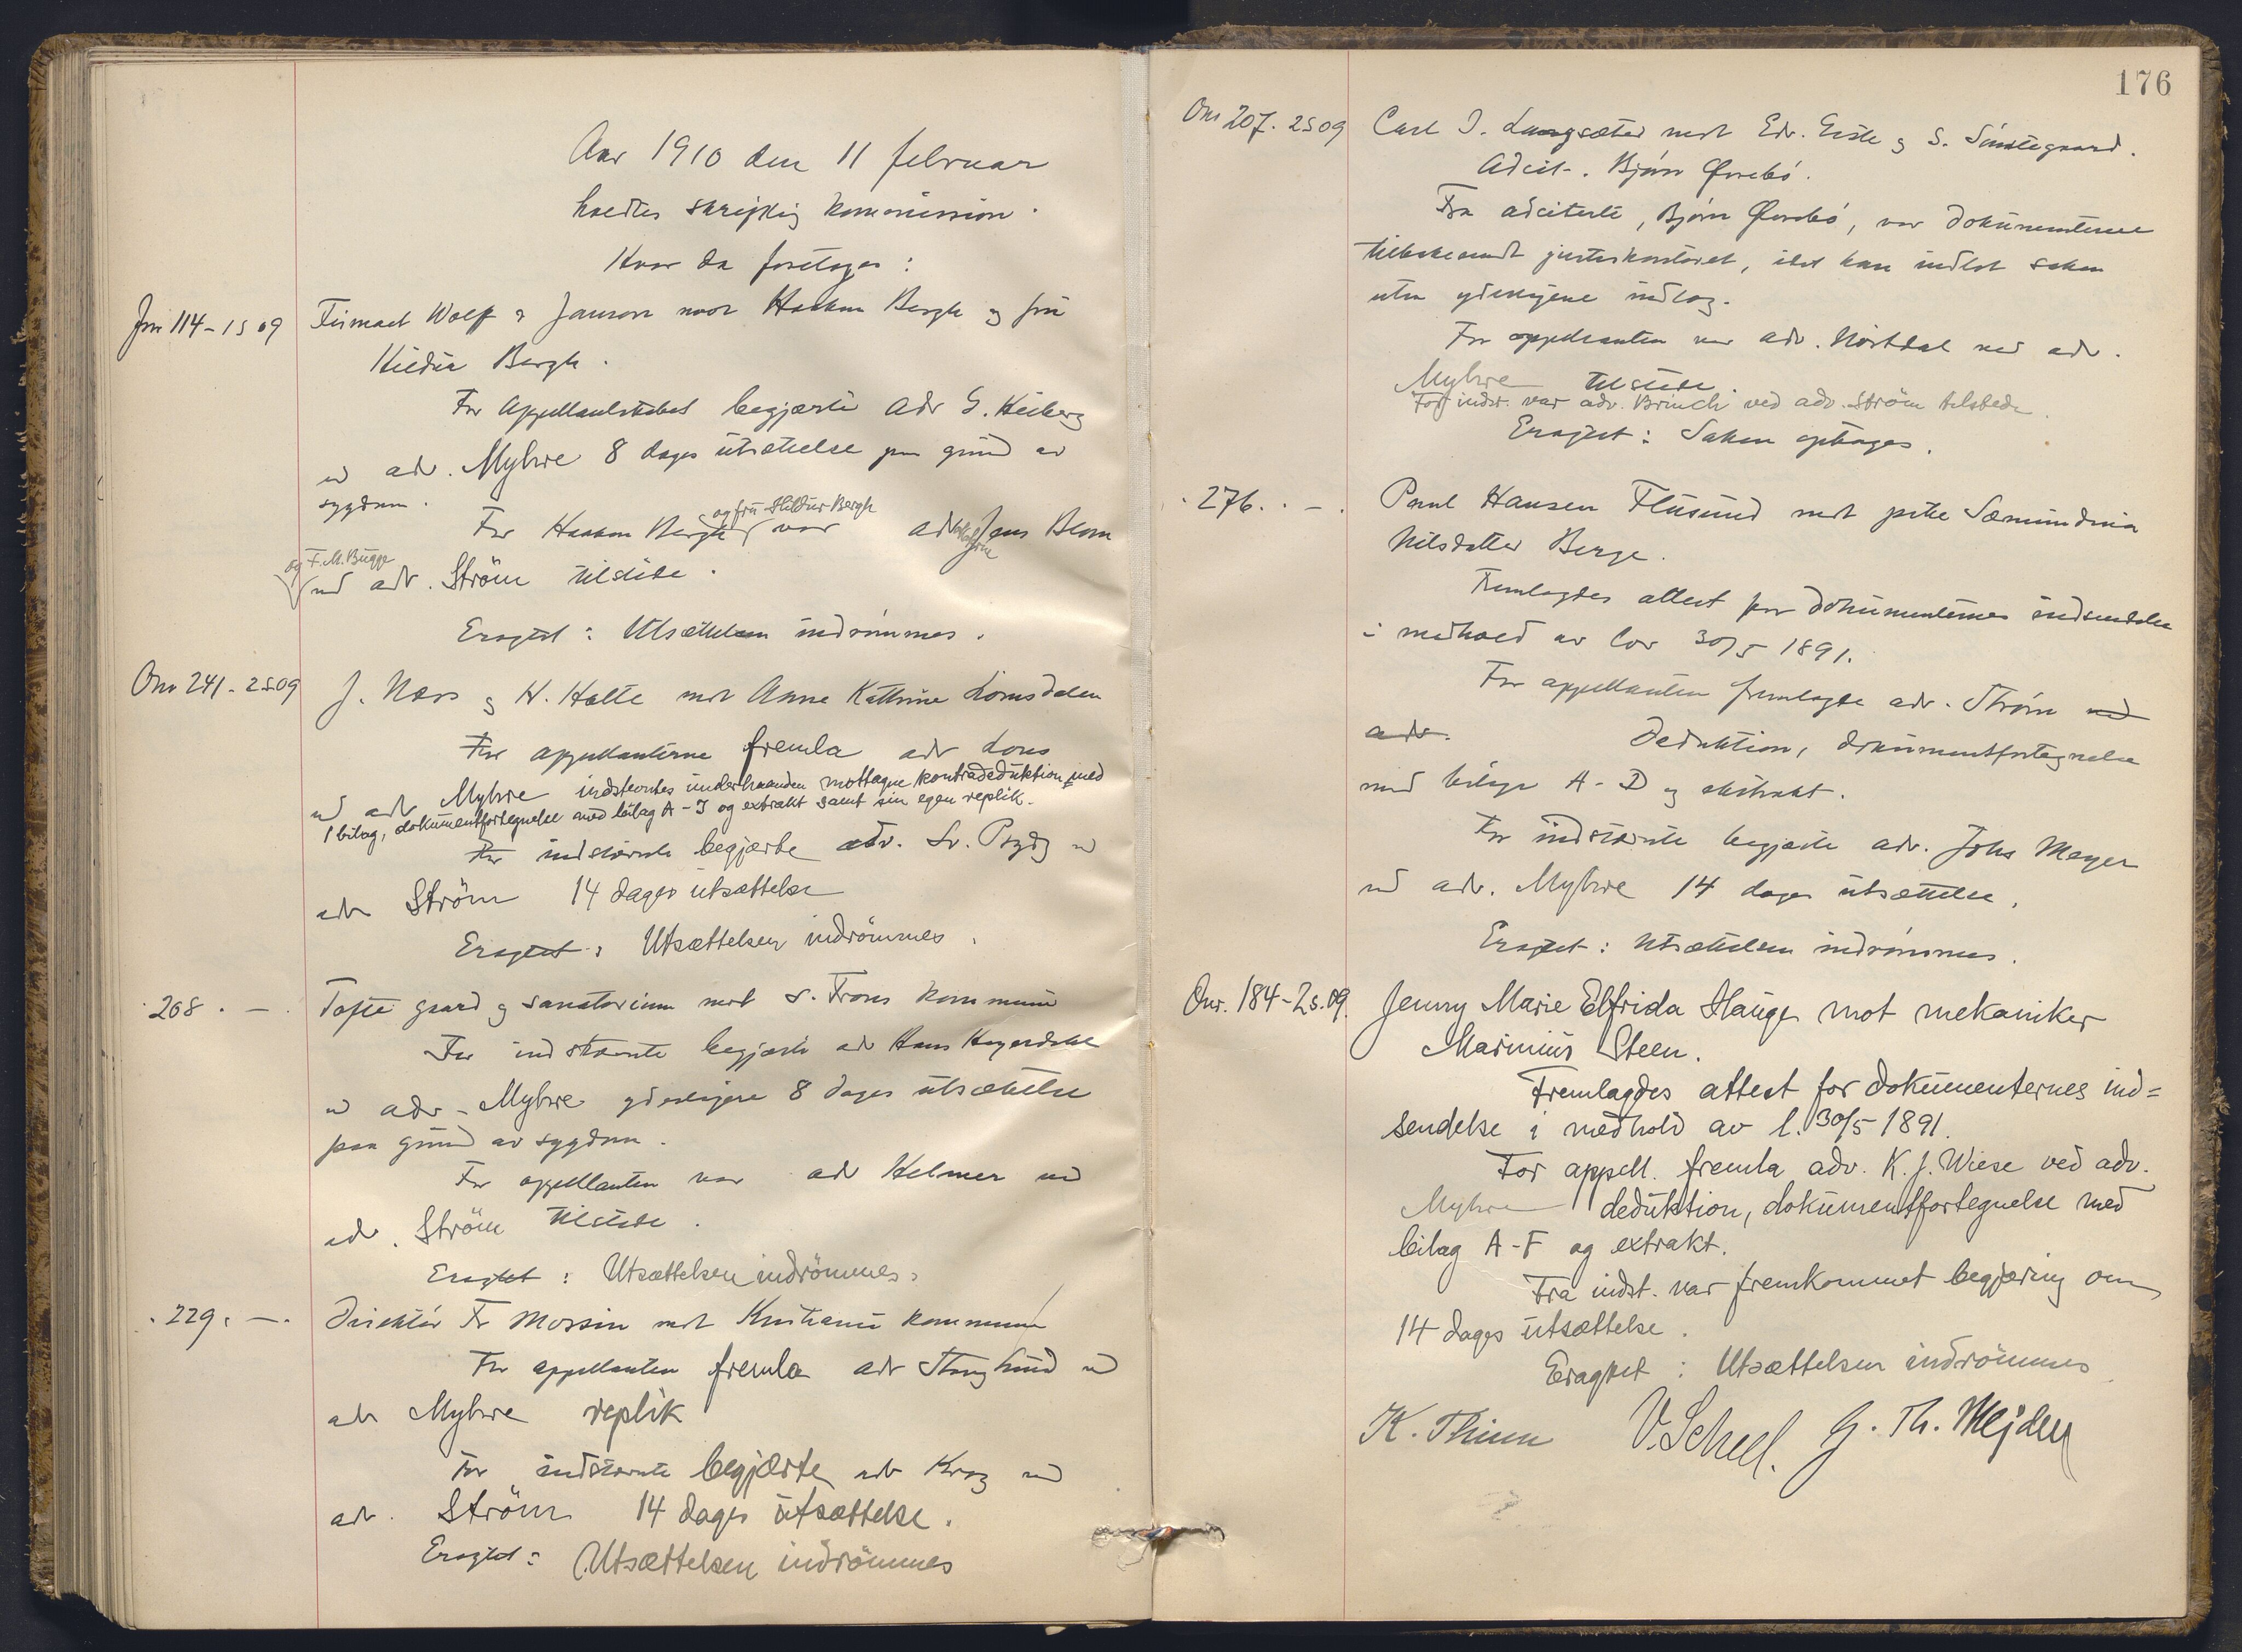 Aar 1910 den 11 februar
holdtes skriftlig kommission.
Hvor da foretoges:
Jnr 114 - 1s 09 Firmaet Wolff & Janson mot Haakon Bergh og fru
Hildur Bergh.
For appellantskabet begjærte adv G. Heiberg
v adv. Myhre 8 dages utsættelse paa grund av
sygdom.
og fru Hildur Bergh
For Haakon Bergh var adv Jens Blom
og F. M. Bugge
ved adv. Ström tilstede.
Eragtet: Utsættelsen indrömmes.
Onr 241 - 2s 09 J. Næss og H. Holte mot Anne Kathrine Lomsdalen
For appellanterne fremla adv Lous
v adv Myhre indstevntes underhaanden mottagne kontradeduktion med
1 bilag, dokumentfortegnelse med bilag A - J og extrakt samt sin egen replik.
For indstævnte begjærte adv. Lv. v
adv Ström 14 dages utsættelse
Eragtet: Utsættelsen indrömmes.
268. — Tofte gaard og sanatorium mot S. Frons kommune
For indstævnte begjærte adv Hans Heyerdahl
v adv. Myhre yderligere 8 dages utsættelse
paa grund av sygdom.
For appellanten var adv Helmer ved
adv. Ström tilstede.
Eragtet: Utsættelsen indrömmes.
. 229. —. Direktör Fr Mossin mot Kristiania kommune
For appellanten fremla adv Stang Lund v
adv Myhre replik
For indstævnte begjærte adv Krag ved
adv. Ström 14 dages utsættelse.
Eragtet: Utsættelsen indrömmes
176
Onr 207. 2s 09 Carl J. Langsæter mot Edv. Eriste og S. Simstegaard.
Adcit. Björn Örnebö.
Fra adciterte, Björn Örnebö, var dokumenterne
tilbakesendt justiskontoret, idet han indlot saken
uten yderligere indlæg.
For appellanten var adv. Nörtdal ved adv.
Myhre tilstede.
For indst. var adv. Brinch ved adv. Ström tilstede.
Eragtet: Saken optages.
. 276. . — . Paul Hansen Flusund mot pike Sæmundina
Nilsdatter Berge.
Fremlagdes attest for dokumenternes indsendelse
i medhold av lov 30/5 1891.
For appellanten fremlagde adv. Ström ved
adv. Deduktion, dokumentfortegnelse
med bilage A - D og ekstrakt.
For indstævnte begjærte adv. Johs Meyer
ved adv. Myhre 14 dages utsættelse.
Eragtet: Utsættelsen indrömmes.
Onr. 184 - 2s. 09. Jenny Marie Elfrida Hauge mot mekaniker
Marinius Steen.
Fremlagdes attest for dokumenternes ind=
sendelse i medhold av l. 30/5 1891.
For appell. fremla adv. K. J. Wiese ved adv.
Myhre deduktion, dokumentfortegnelse med
bilag A - F og extrakt.
Fra indst. var fremkommet begjæring om
14 dages utsættelse.
Eragtet: Utsættelsen indrömmes
K. Thinn V. Scheel. G. Th. Mejdell